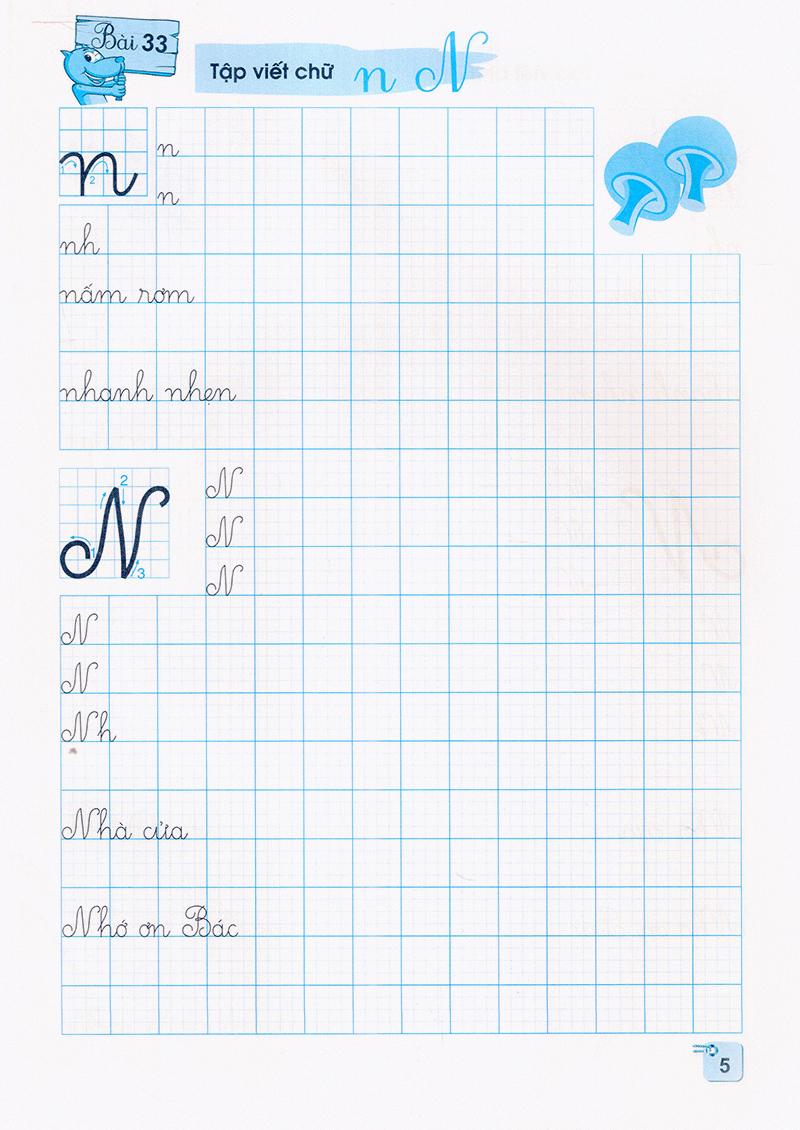 Bài 33
Tập viết chữ n N
n
1 2
n
n
nh
nấm rơm
nhanh nhẹn
N
1 2 3
N
N
N
N
N
Nh
Nhà cửa
Nhớ ơn Bác
5